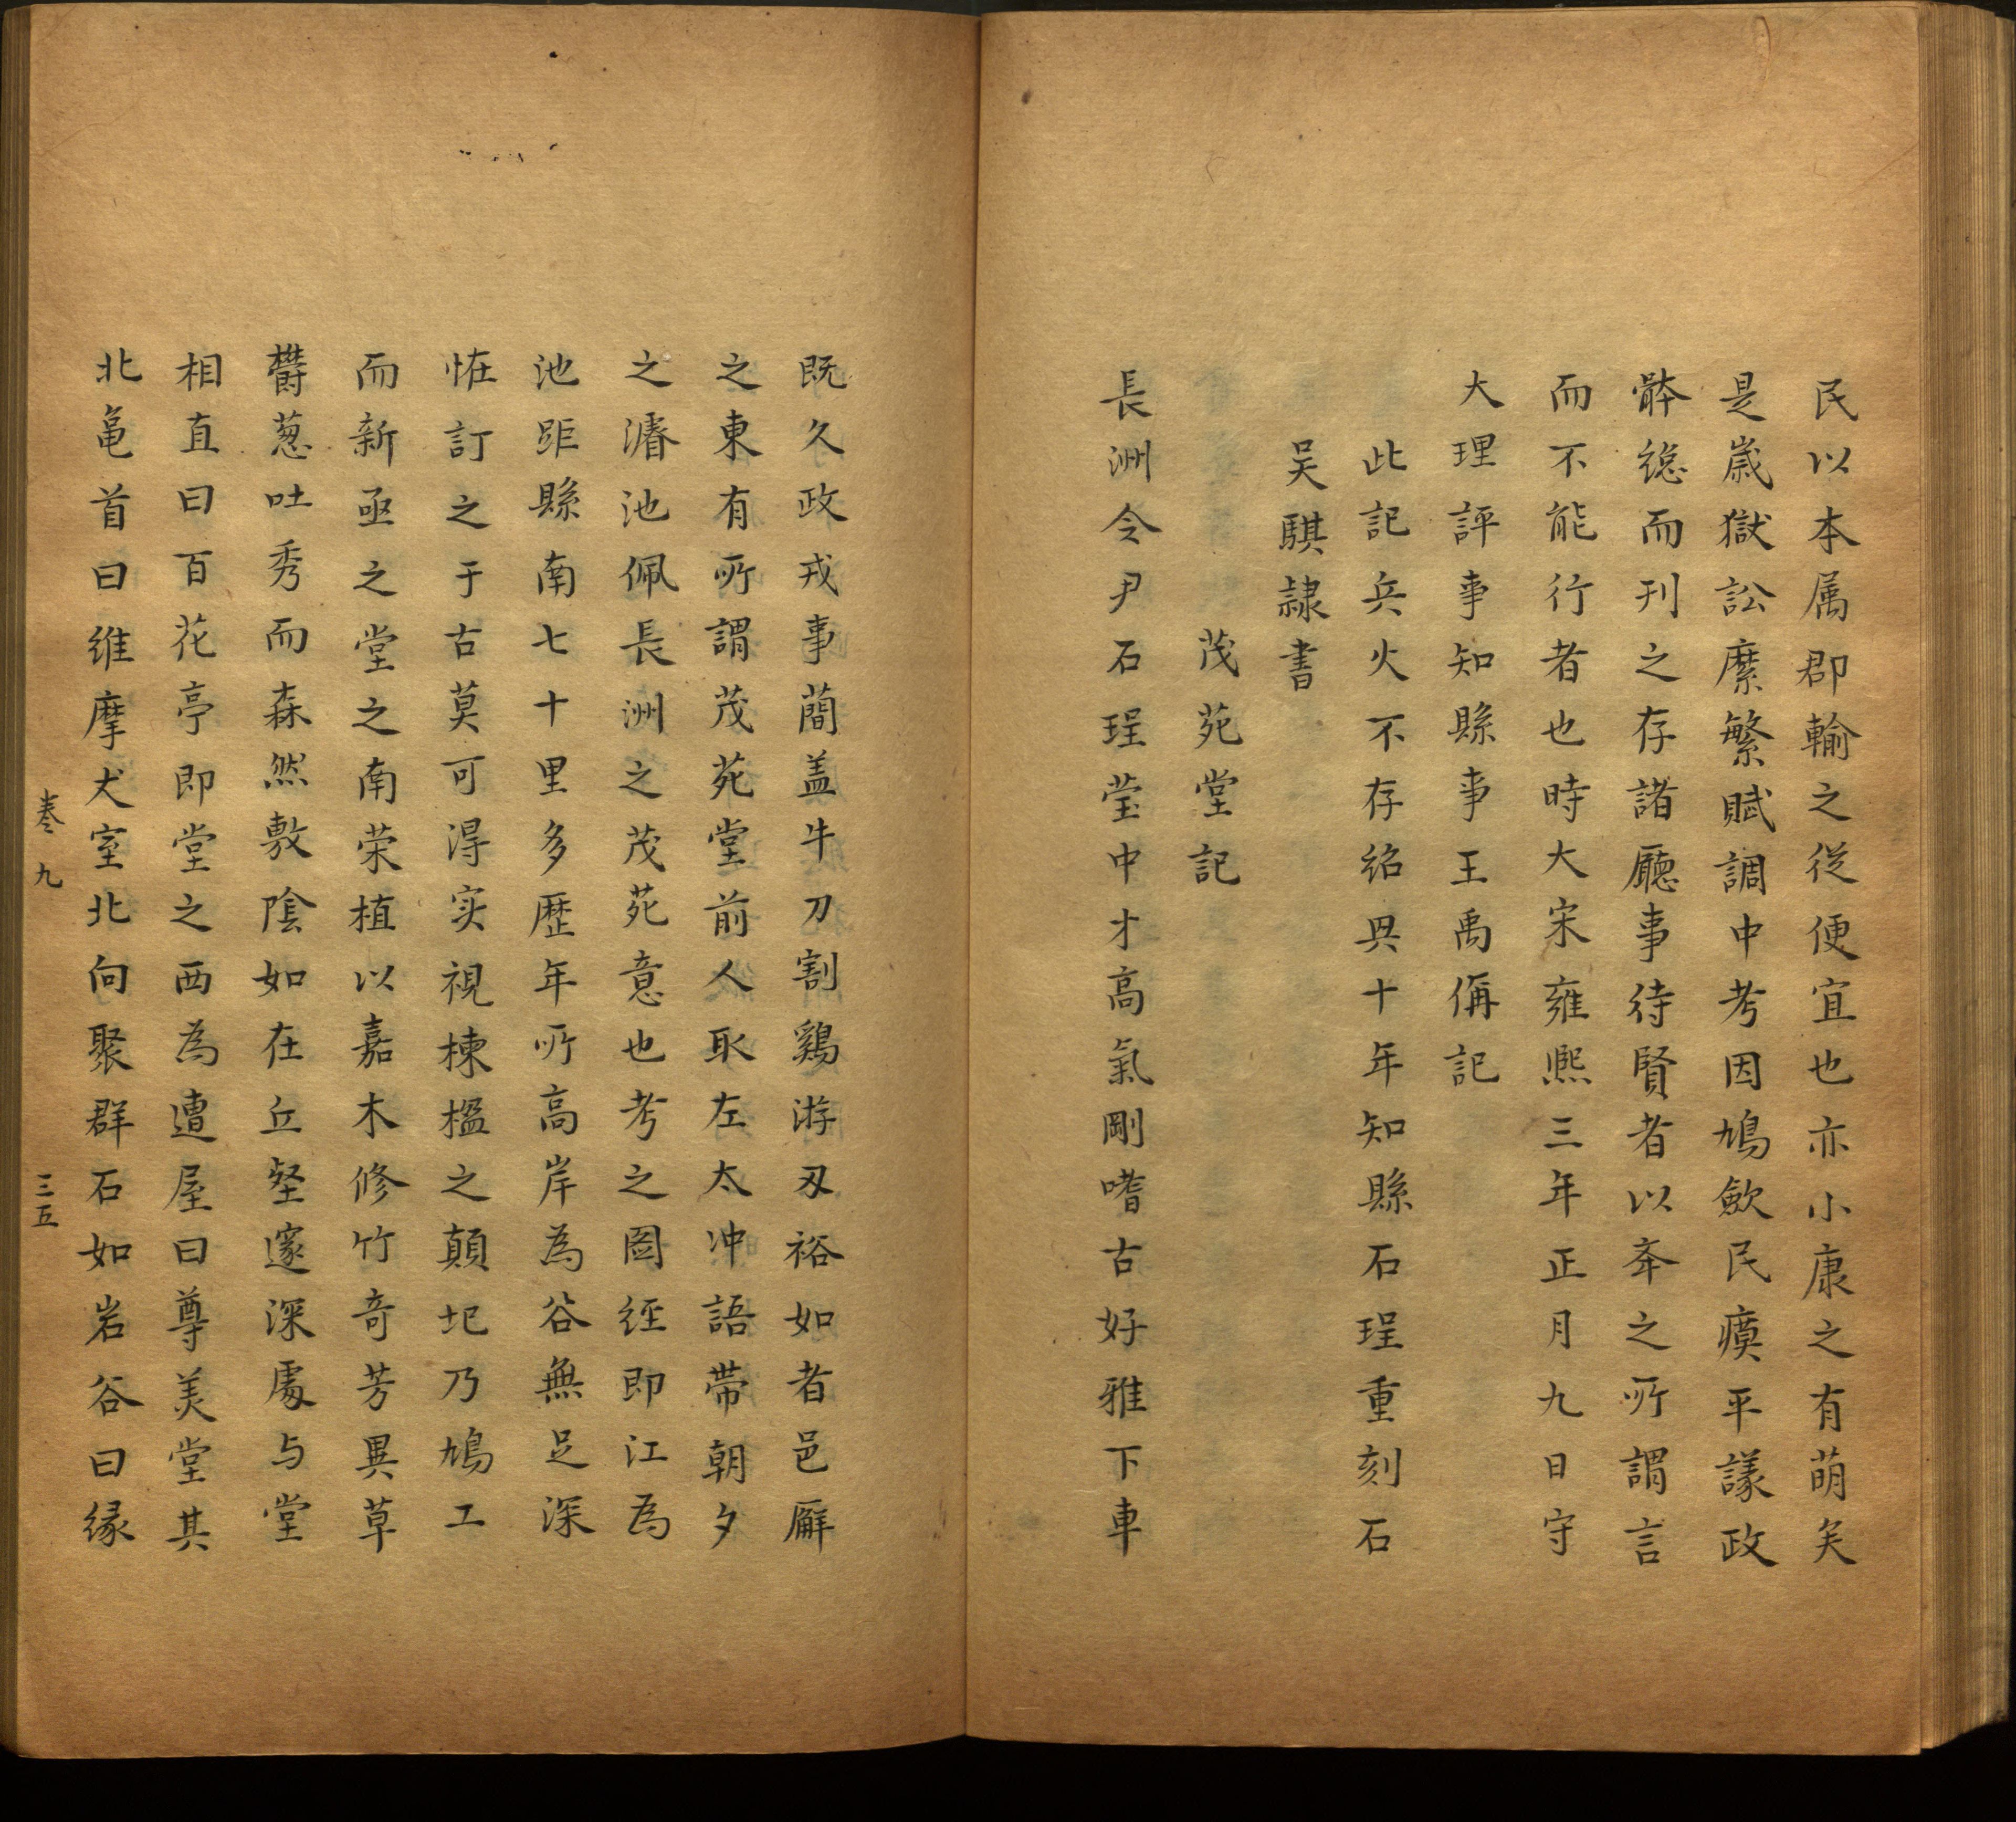 民以本属郡輸之從便宜也亦小康之有萌矣
是歲獄訟縻繁賦調中考因鳩歛民瘼平議政
骵總而刊之存諸廳事待賢者以夲之所謂言
而不能行者也時大宋雍熙三年正月九日守
大理評事知縣事王禹偁記
此記兵火不存紹興十年知縣石珵重刻石
吴騏隷書
茂苑堂記
長洲令尹石珵瑩中才高氣剛嗜古好雅下車
既久政戎事蕳盖牛刀割鷄游刃裕如者邑廨
之東有所謂茂苑堂前人取左太冲語帯朝夕
之濬池佩長洲之茂苑意也考之圖経即江為
池距縣南七十里多歴年所高岸為谷無足深
恠訂之于古莫可淂实視棟楹之顛圮乃鳩工
而新亟之堂之南荣植以嘉木修竹奇芳異草
欝葱吐秀而森然敷陰如在丘壑邃深處与堂
相直曰百花亭即堂之西為遭屋曰尊美堂其
北黽首曰維摩犬室北向聚群石如岩谷曰縁
卷九 三五